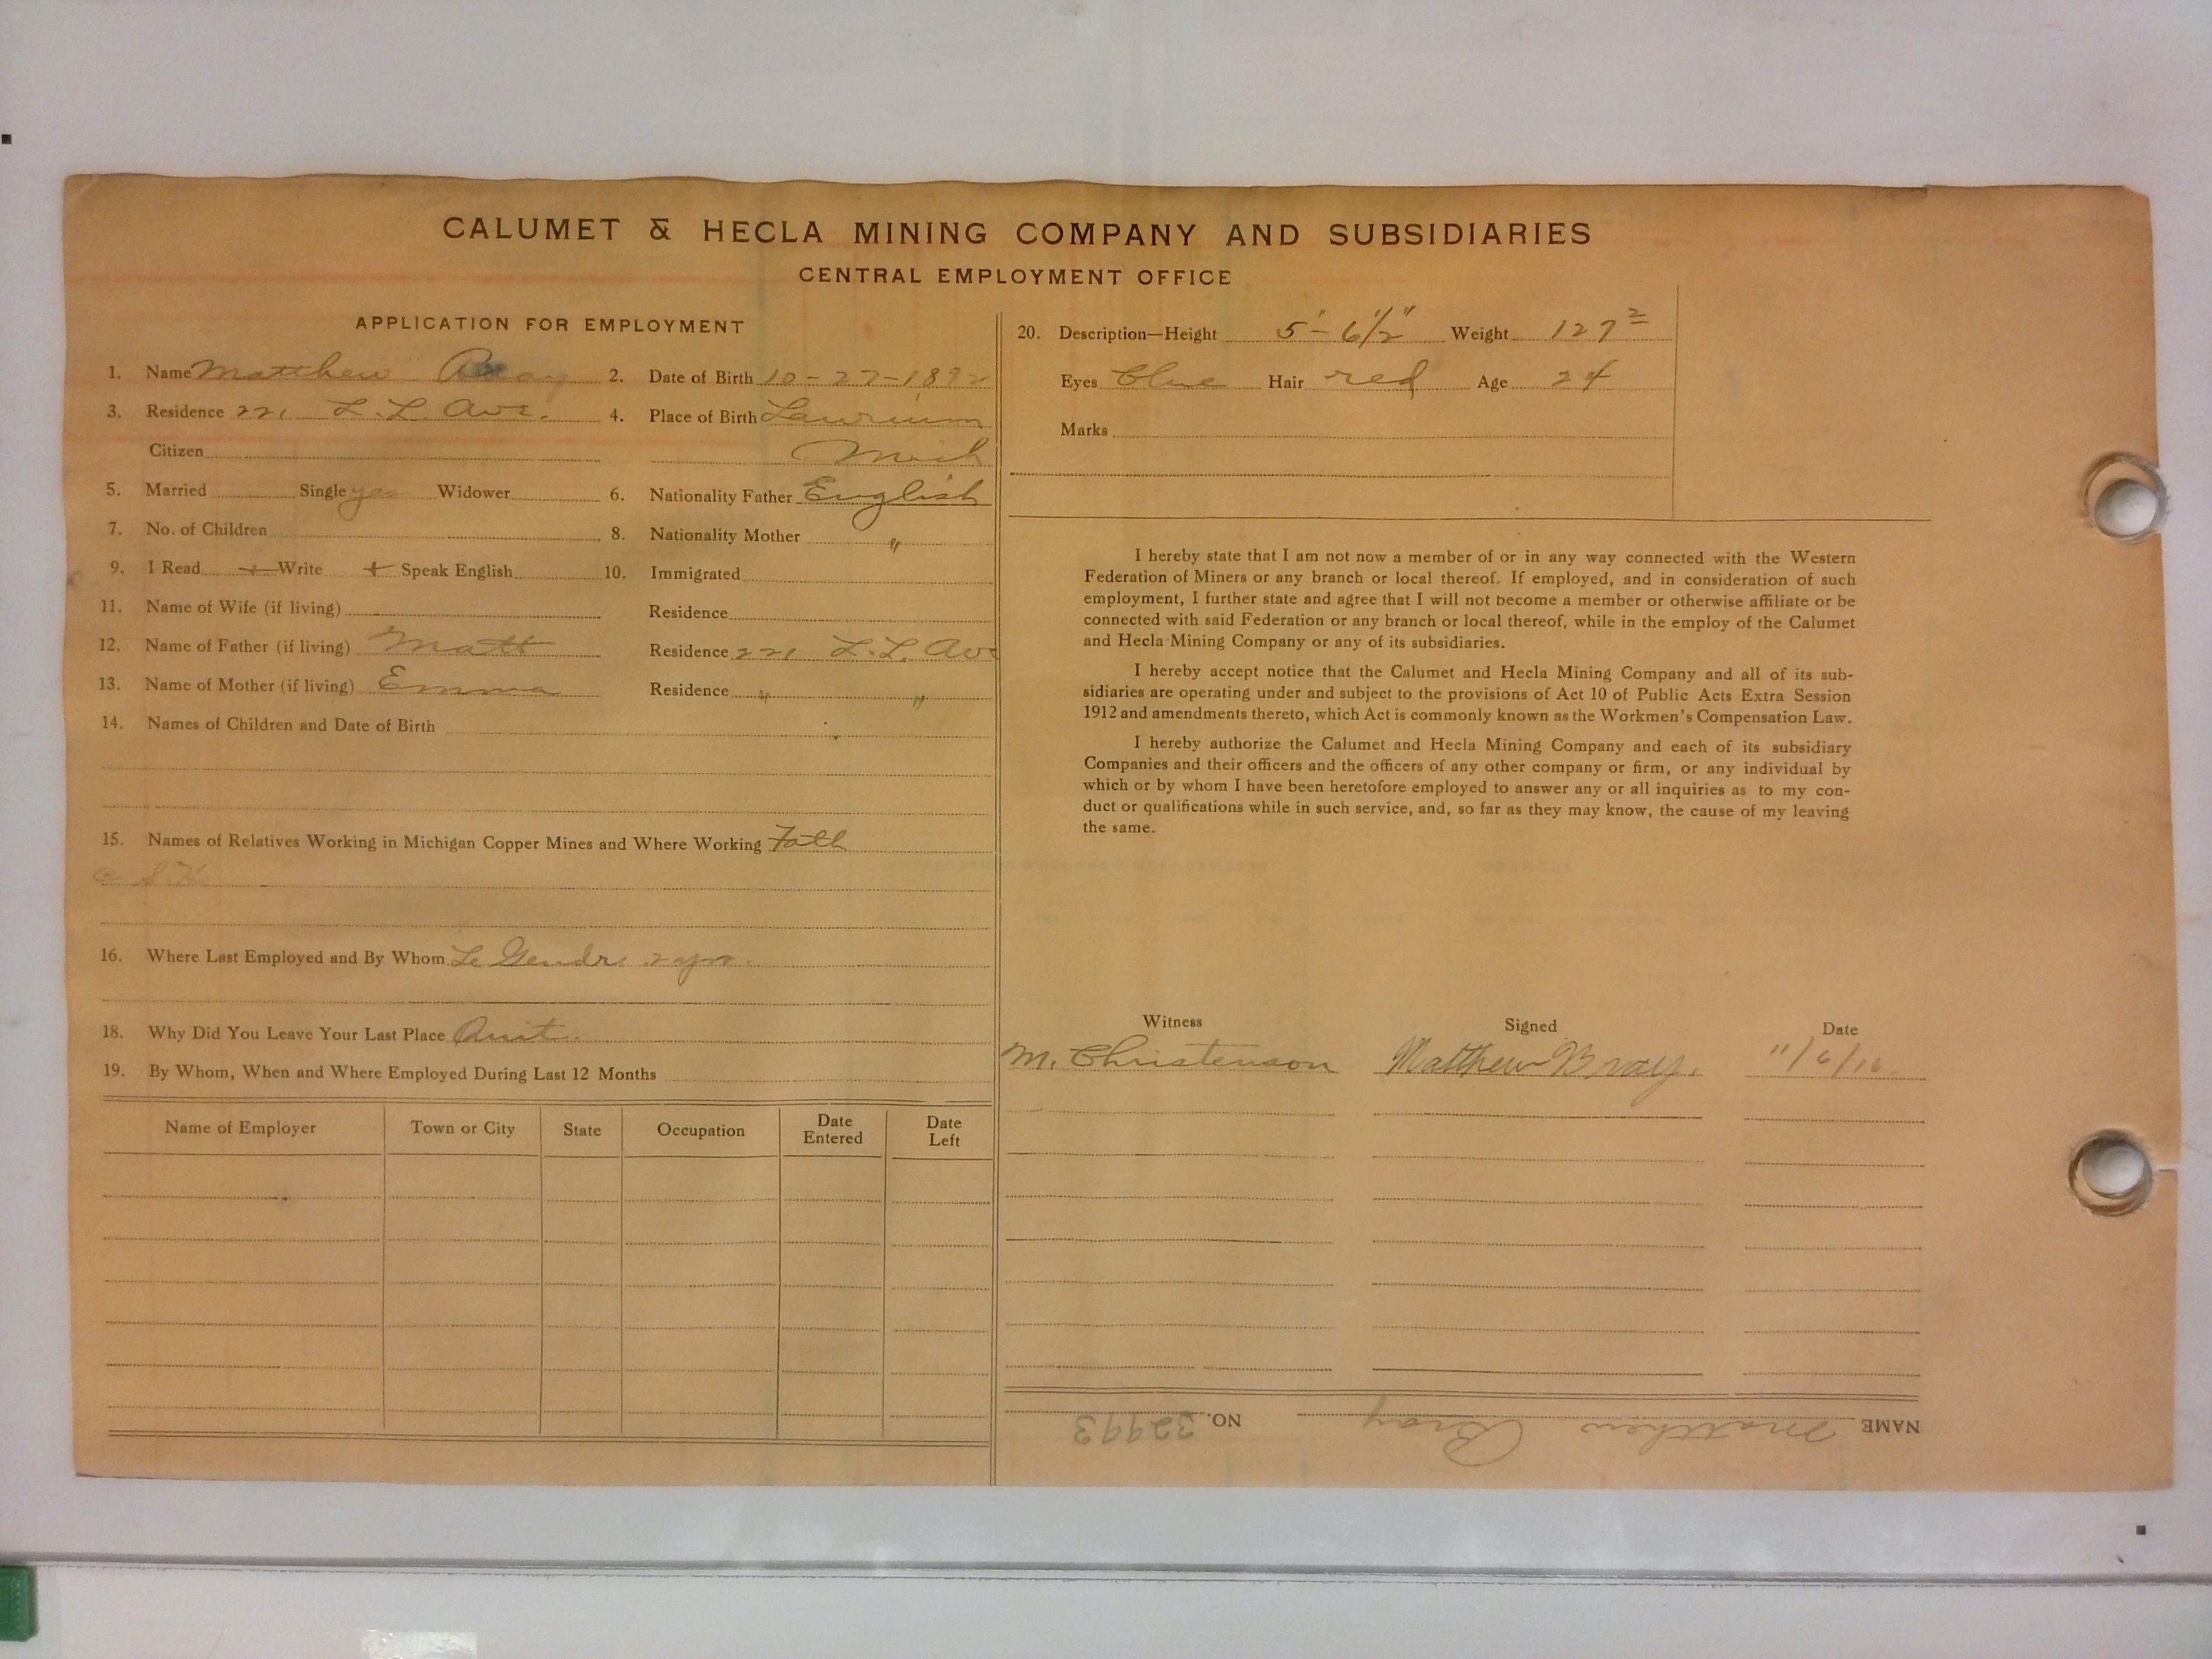 CALUMET & HECLA MINING COMPANY AND SUBSIDIARIES
CENTRAL EMPLOYMENT OFFICE
APPLICATION FOR EMPLOYMENT
1. Name Matthew Bray 2. Date of Birth 10-27-1892
3. Residence 221 L.L. Ave. 4. Place of Birth Laurium
Citizen Mich
5. Married Single yes Widower 6. Nationality Father English
7. No. of Children 8. Nationality Mother "
9. I Read + Write + Speak English 10. Immigrated
11. Name of Wife (if living) Residence
12. Name of Father (if living) Matt Residence 221 L.L. Ave
13. Name of Mother (if living) Emma Residence " "
14. Names of Children and Date of Birth
15. Names of Relatives Working in Michigan Copper Mines and Where Working Fath
16. Where Last Employed and By Whom Le Gendre 2 yrs.
18. Why Did You Leave Your Last Place Quit.
19. By Whom, When and Where Employed During Last 12 Months
Name of Employer Town or City State Occupation Date Entered Date Left
20. Description—Height 5'-6 1/2" Weight 127
Eyes Blue Hair red Age 24
Marks
I hereby state that I am not now a member of or in any way connected with the Western
Federation of Miners or any branch or local thereof. If employed, and in consideration of such
employment, I further state and agree that I will not become a member or otherwise affiliate or be
connected with said Federation or any branch or local thereof, while in the employ of the Calumet
and Hecla Mining Company or any of its subsidiaries.
I hereby accept notice that the Calumet and Hecla Mining Company and all of its sub-
sidiaries are operating under and subject to the provisions of Act 10 of Public Acts Extra Session
1912 and amendments thereto, which Act is commonly known as the Workmen's Compensation Law.
I hereby authorize the Calumet and Hecla Mining Company and each of its subsidiary
Companies and their officers and the officers of any other company or firm, or any individual by
which or by whom I have been heretofore employed to answer any or all inquiries as to my con-
duct or qualifications while in such service, and, so far as they may know, the cause of my leaving
the same.
Witness Signed Date
M. Christenson Matthew Bray. 11/6/16
NAME Matthew Bray NO. 32993